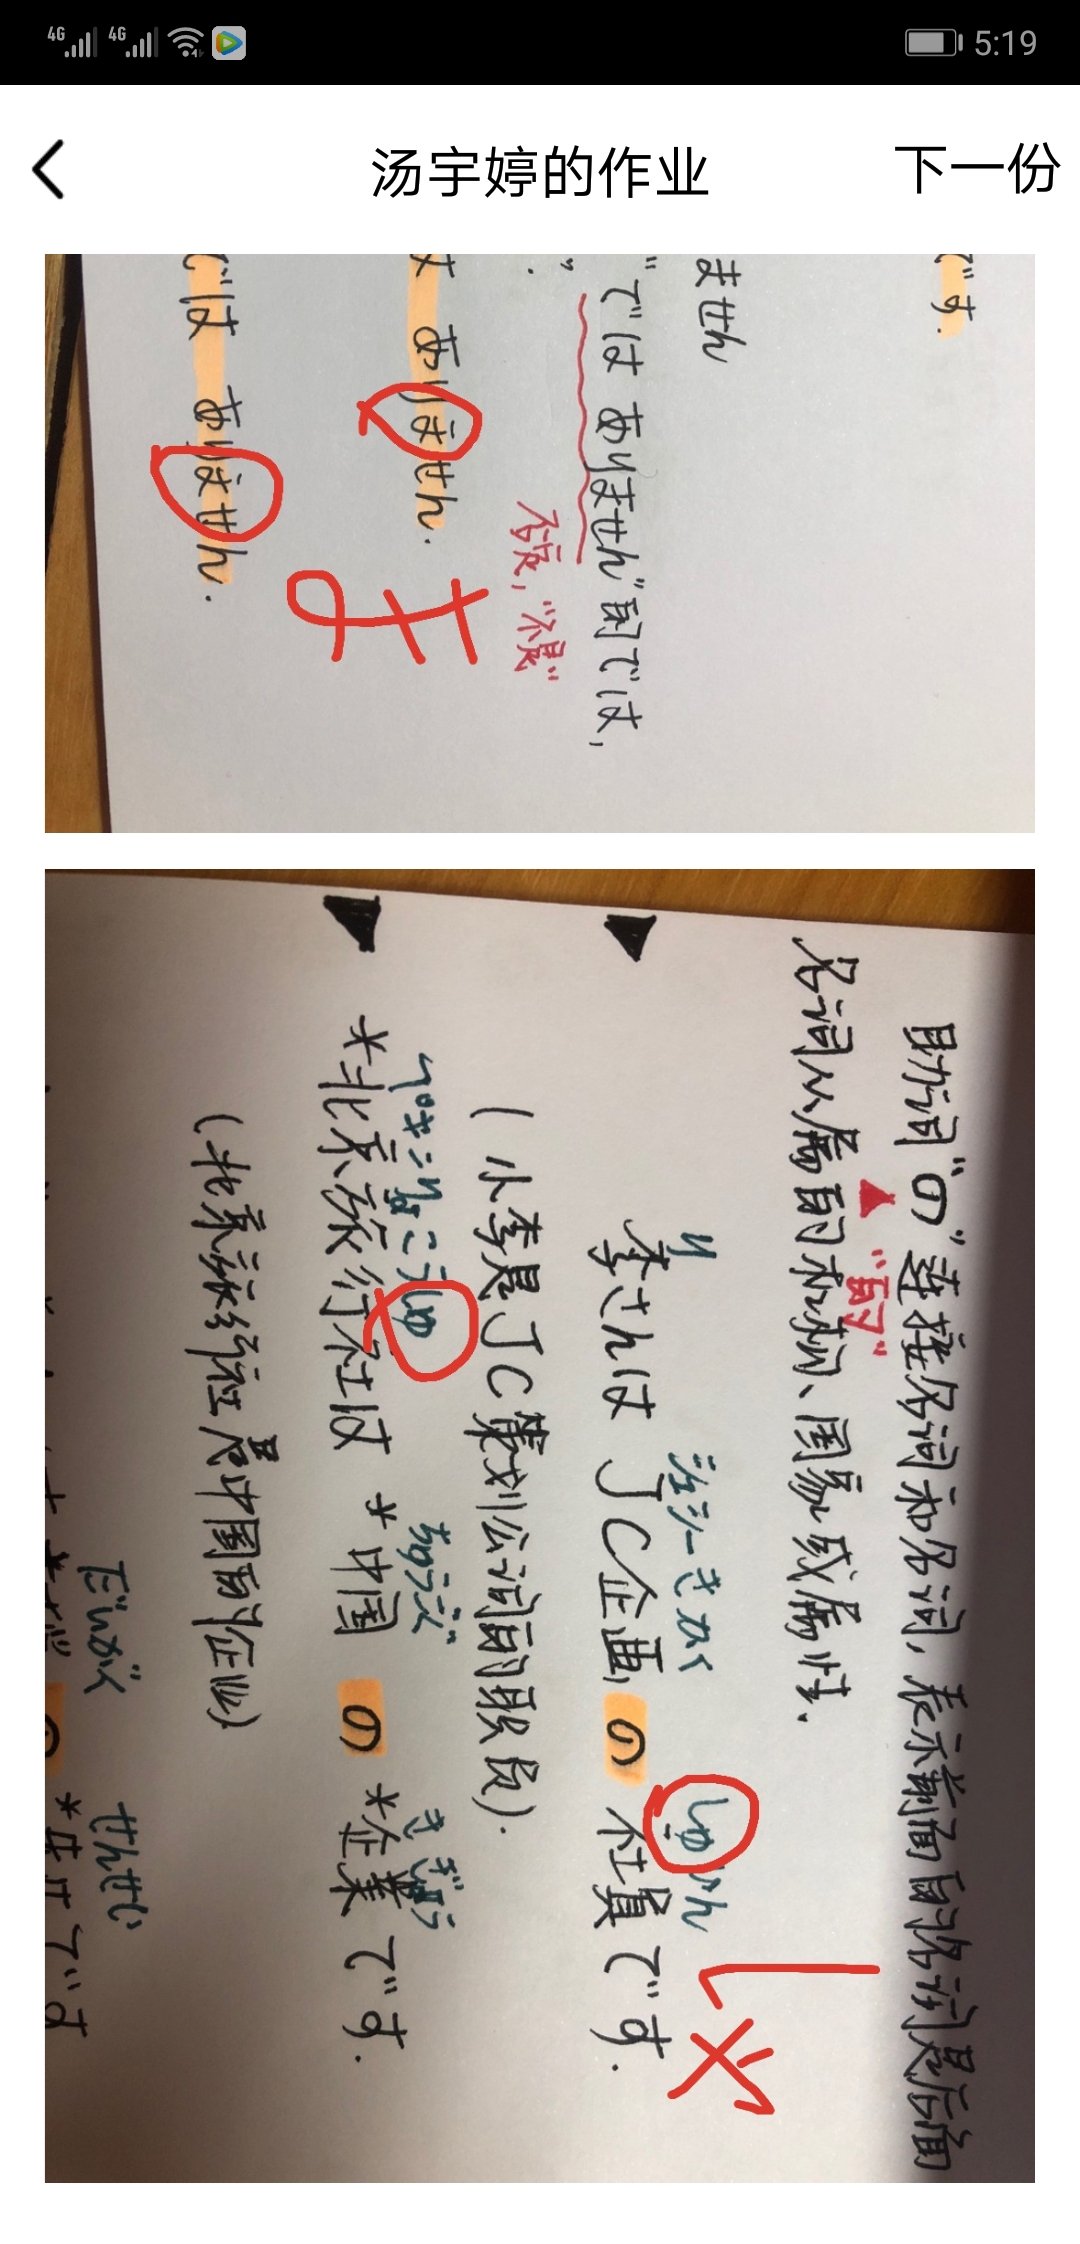 4G 4G 5:19
汤宇婷的作业
下一份
です.
ません
"では ありません"的では,
否定, "不是"
ありません.
では ありません.
ま
助词"の"连接名词和名词, 表示前面的名词是后面
"的"
名词从属的机构、国家或属性.
り ジェーシーきかく しゅいん
李さんは JC企画の 社員です.
しゃ
(小李是JC策划公司的职员).
ペキンりょこうしゅ ちゅうごく きぎょう
*北京旅行社は *中国の *企業です.
(北京旅行社是中国的企业)
だいがく せんせい
です